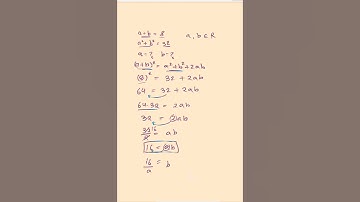 a+b = 8 a, b ∈ R
a²+b² = 32
a = ? b = ?
(a+b)² = a²+b²+2ab
(8)² = 32 + 2ab
64 = 32 + 2ab
64-32 = 2ab
32 = 2ab
= ab
16 = ab
16/a = b